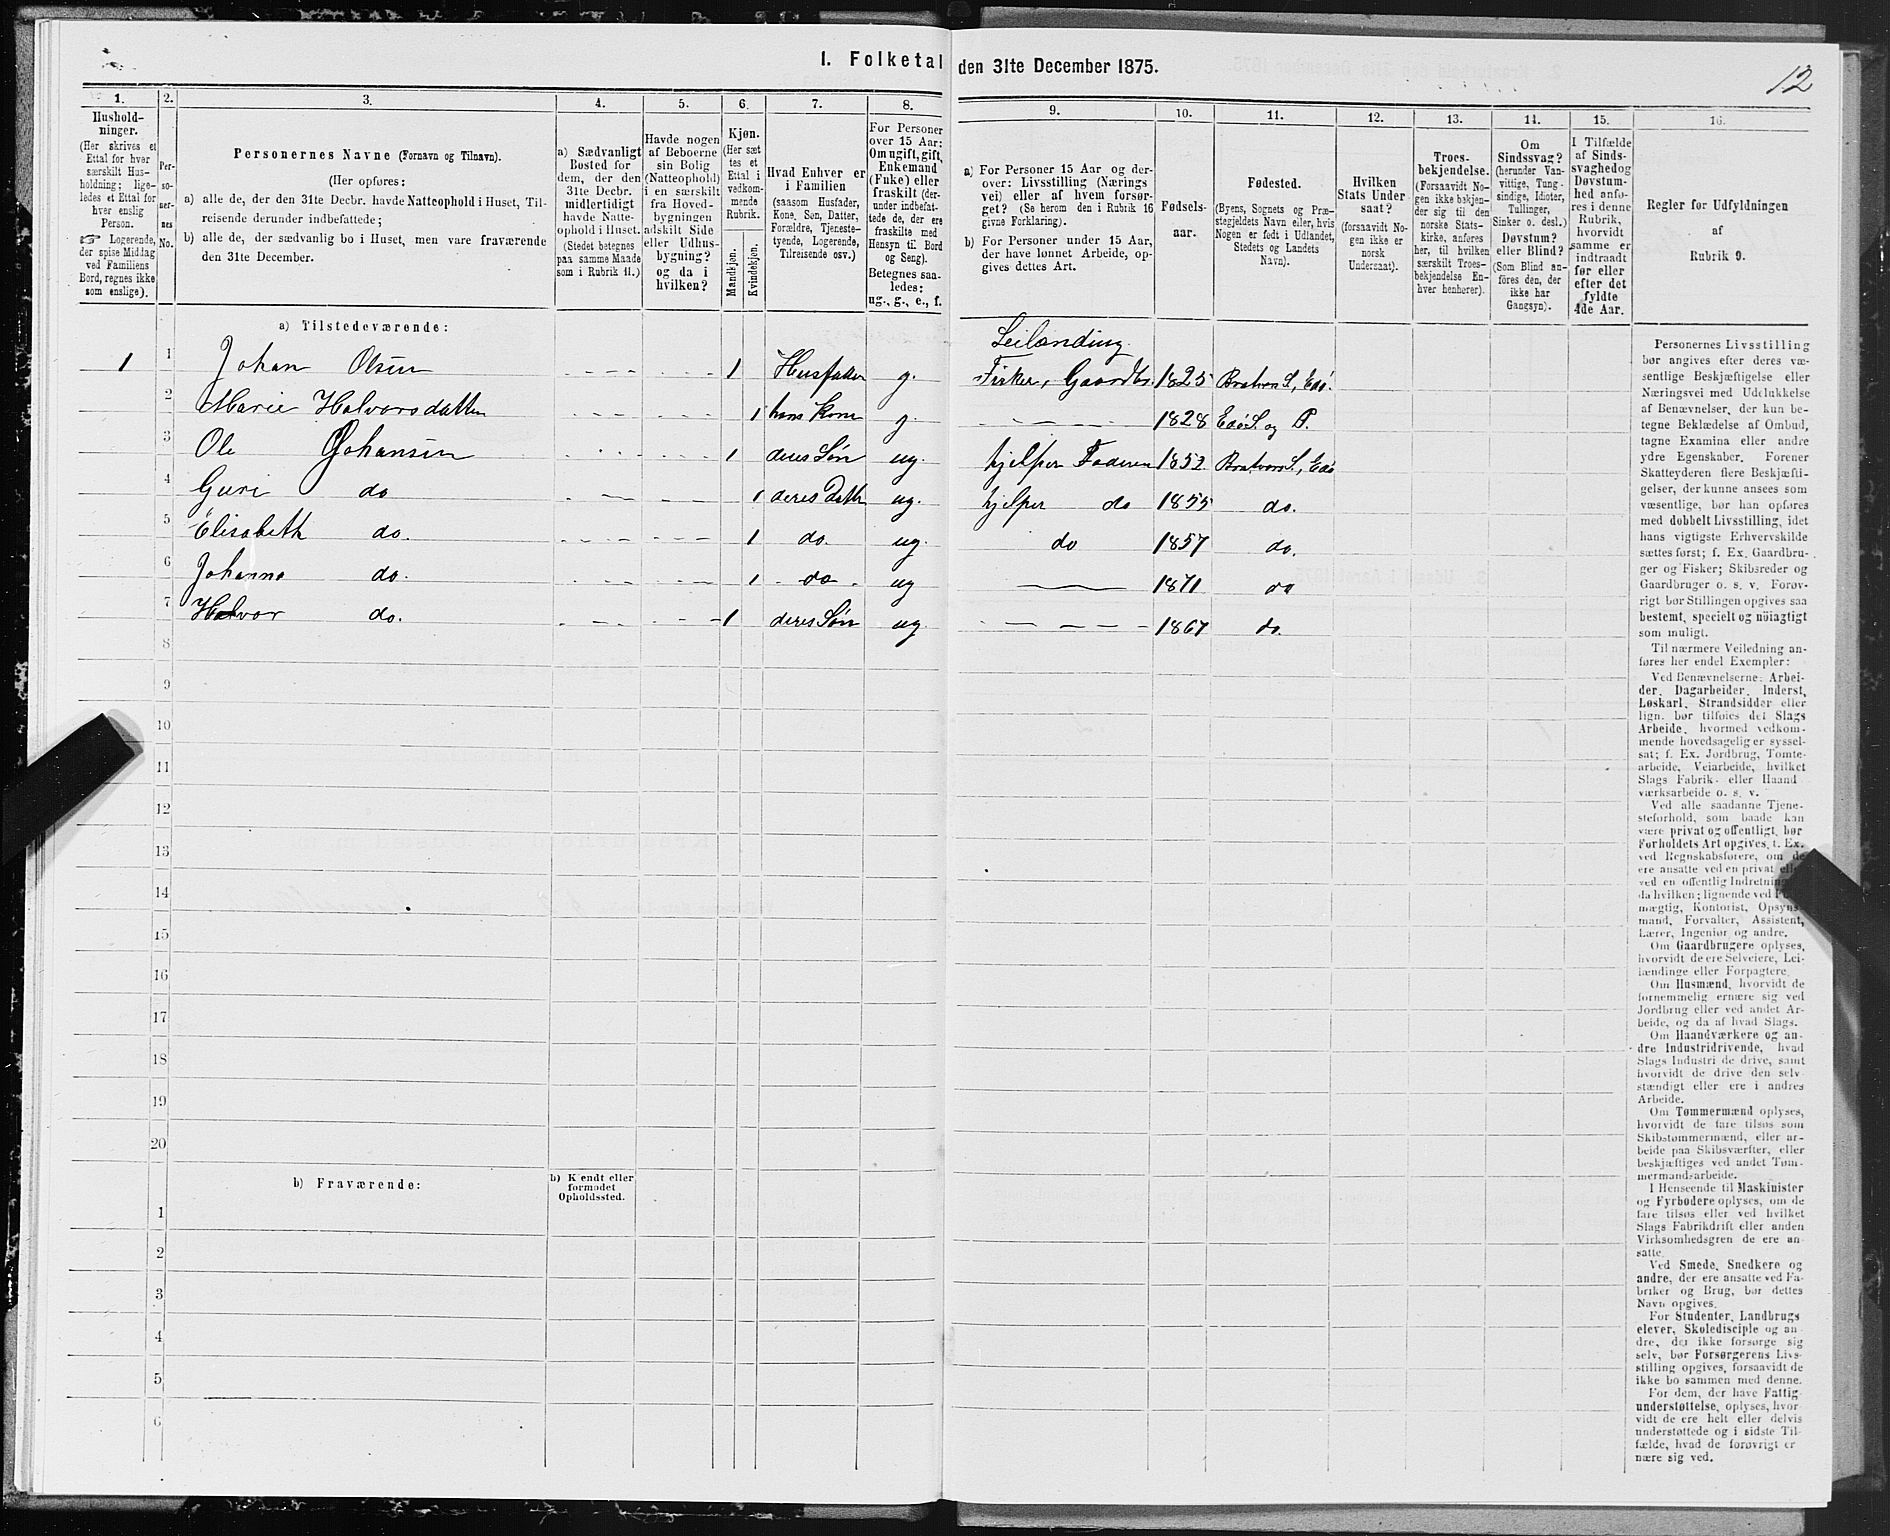 I. Folketal den 31te December 1875.
12
1.
2.
3.
4.
5.
6.
7.
8.
9.
10.
11.
12.
13.
14.
15.
16.
Hushold-
ninger.
(Her skrives et
Ettal for hver
særskilt Hus-
holdning; lige-
ledes et Ettal for
hver enslig
Person.
☞ Logerende,
der spise Middag
ved Familiens
Bord, regnes ikke
som enslige).
Per-
so-
ner-
nes
No.
Personernes Navne (Fornavn og Tilnavn).
(Her opføres:
a) alle de, der den 31te Decbr. havde Natteophold i Huset, Til-
reisende derunder indbefattede;
b) alle de, der sædvanlig bo i Huset, men vare fraværende
den 31te December.
a) Sædvanligt
Bosted for
dem, der den
31te Decbr.
midlertidigt
havde Natte-
ophold i Huset.
(Stedet betegnes
paa samme Maade
som i Rubrik 11.)
Havde nogen
af Beboerne
sin Bolig
(Natteophold)
i en særskilt
fra Hoved-
bygningen
adskilt Side
eller Udhus-
bygning?
og da i
hvilken?
Kjøn.
(Her sæt
tes et
Ettal i
vedkom-
mende
Rubrik.
Mandkjøn.
Kvindekjøn.
Hvad Enhver er
i Familien
(saasom Husfader,
Kone, Søn, Datter,
Forældre, Tjeneste-
tyende, Logerende,
Tilreisende osv.)
For Personer
over 15 Aar:
Om ugift, gift,
Enkemand
(Enke) eller
fraskilt (der-
under indbefat-
tede de, der ere
fraskilte med
Hensyn til Bord
og Seng).
Betegnes saa-
ledes:
ug., g., e., f.
a) For Personer 15 Aar og der-
over: Livsstilling (Nærings
vei) eller af hvem forsør-
get? (Se herom den i Rubrik 16
givne Forklaring).
b) For Personer under 15 Aar,
der have lønnet Arbeide, op-
gives dettes Art.
Fødsels-
aar.
Fødested.
(Byens, Sognets og Præ-
stegjeldets Navn eller, hvis
Nogen er født i Udlandet,
Stedets og Landets
Navn).
Hvilken
Stats Under
saat?
(forsaavidt No-
gen ikke er
norsk
Undersaat).
Troes-
bekjendelse.
(Forsaavidt No-
gen ikke bekjen-
der sig til den
norske Stats-
kirke, anføres
her, til hvilken
særskilt Troes-
bekjendelse En-
hver henhører).
Om
Sindssvag?
(herunder Van-
vittige, Tung-
sindige, Idioter,
Tullinger,
Sinker o. desl.)
Døvstum?
eller Blind?
(Som Blind an-
føres den, der
ikke har
Gangsyn).
I Tilfælde
af Sinds-
svaghed og
Døvstum-
hed anfø-
res i denne
Rubrik,
hvorvidt
samme er
indtraadt
før eller
efter det
fyldte
4de Aar.
Regler for Udfyldningen
af
Rubrik 9.
a) Tilstedeværende:
Leilænding.
1 1 Johan Olsen 1 Husfader g. Fisker, Gaardbr. 1825 Bratvær S., Edø.
2 Marie Halvorsdatter 1 hans Kone g. 1828 Edø S. og P.
3 Ole Johansen 1 deres Søn ug. hjelper Faderen 1852 Bratvær S., Edø
4 Guri do 1 deres Datt ug. hjelper do 1855 do.
5 Elisabeth do. 1 do. ug. do 1857 do.
6 Johanna do. 1 do. ug 1871 do
7 Halvor do. 1 deres Søn ug. 1867 do.
8
9
10
11
12
13
14
15
16
17
18
19
20
b) Fraværende:
b) Kjendt eller
formodet
Opholdssted.
1
2
3
4
5
6
Personernes Livsstilling
bør angives efter deres væ-
sentlige Beskjæftigelse eller
Næringsvei med Udelukkelse
af Benævnelser, der kun be-
tegne Beklædelse af Ombud,
tagne Examina eller andre
ydre Egenskaber. Forener
Skatteyderen flere Beskjæfti-
gelser, der kunne ansees som
væsentlige, bør han opføres
med dobbelt Livsstilling, idet
hans vigtigste Erhvervskilde
sættes først; f. Ex. Gaardbru-
ger og Fisker; Skibsreder og
Gaardbruger o. s. v. Forøv-
rigt bør Stillingen opgives saa
bestemt, specielt og nøiagtigt
som muligt.
Til nærmere Veiledning an-
føres her endel Exempler:
Ved Benævnelserne: Arbei-
der, Dagarbeider, Inderst,
Løskarl, Strandsidder eller
lign. bør tilføies det Slags
Arbeide, hvormed vedkom-
mende hovedsagelig er syssel-
sat; f. Ex. Jordbrug, Tomte-
arbeide, Veiarbeide, hvilket
Slags Fabrik- eller Haand
værksarbeide o. s. v.
Ved alle saadanne Tjene-
steforhold, som baade kan
være privat og offentligt, bør
Forholdets Art opgives, f. Ex.
ved Regnskabsførere, om de
ere ansatte ved en privat eller
ved en offentlig Indretning
da hvilken; lignende ved
mægtig, Kontorist, Opsyns-
mand, Forvalter, Assistent,
Lærer, Ingeniør og andre.
Om Gaardbrugere oplyses,
hvorvidt de ere Selveiere, Lei-
lændinge eller Forpagtere.
Om Husmænd, hvorvidt de
fornemmelig ernære sig ved
Jordbrug eller ved andet Ar-
beide, og da af hvad Slags.
Om Haandværkere og an-
dre Industridrivende, hvad
Slags Industri de drive, samt
hvorvidt de drive den selv-
stændigt eller ere i andres
Arbeide.
Om Tømmermænd oplyses,
hvorvidt de fare tilsøs som
Skibstømmermænd, eller ar-
beide paa Skibsværfter, eller
beskjæftiges ved andet Tøm-
mermandsarbeide.
I Henseende til Maskinister
og Fyrbødere oplyses, om de
fare tilsøs eller ved hvilket
Slags Fabrikdrift eller anden
Virksomhedsgren de ere an-
satte.
Ved Smede, Snedkere og
andre, der ere ansatte ved Fa-
briker og Brug, bør dettes
Navn opgives.
For Studenter, Landbrugs
elever, Skoledisciple og an-
dre, der ikke forsørge sig
selv, bør Forsørgerens Livs-
stilling opgives, forsaavidt de
ikke bo sammen med denne.
For dem, der have Fattig-
understøttelse, oplyses, hvor-
vidt de ere helt eller delvis
understøttede og i sidste Til-
fælde, hvad de forøvrigt er
nære sig ved.